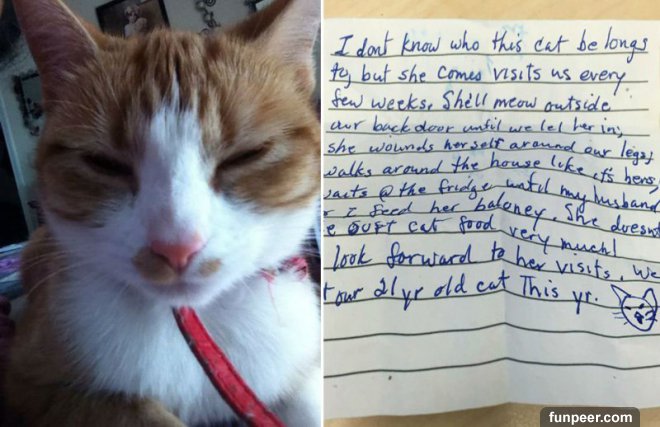 I dont know who this cat belongs
to, but she comes visits us every
few weeks. She'll meow outside
our back door until we let her in,
she wounds herself around our legs,
walks around the house like it's hers,
waits @ the fridge until my husband
or I feed her baloney. She doesn't
e our cat food very much!
look forward to her visits. We
t our 21 yr old cat This yr.
funpeer.com